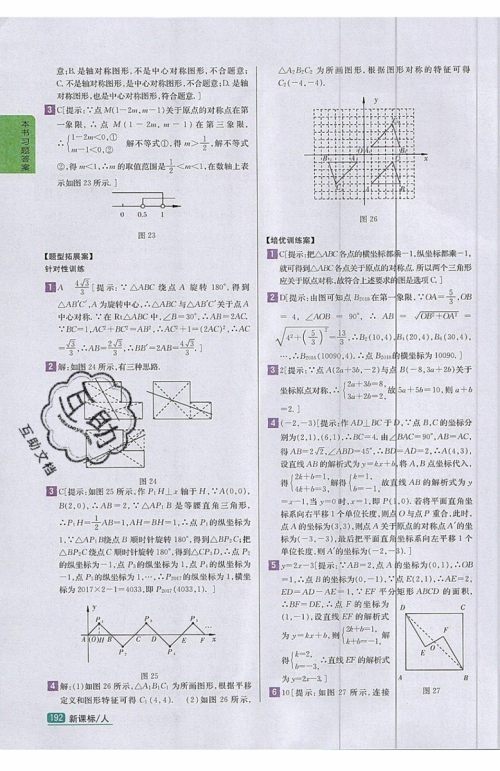 意;B. 是轴对称图形,不是中心对称图形,不合题意;
C. 不是轴对称图形,是中心对称图形,不合题意;D. 是轴
对称图形,也是中心对称图形,符合题意.]
3 C[提示:∵点 M(1-2m,m-1)关于原点的对称点在第
一象限,∴点 M(1-2m,m-1)在第三象限,
∴{1-2m<0,① m-1<0,② 解不等式①,得 m>1/2,解不等式
②,得 m<1,∴m 的取值范围是 1/2<m<1,在数轴上表
示如图 23 所示.]
0 0.5 1
图 23
【题型拓展案】
针对性训练
1 A 4√3/3 [提示:∵△ABC 绕点 A 旋转 180°,得到
△AB'C',A 为旋转中心,∴△ABC 与△AB'C'关于点 A
中心对称.∵在 Rt△ABC 中,∠B=30°,∴AB=2AC,
∵BC=1,AC²+BC²=AB²,∴AC²+1=(2AC)²,∴AC
=√3/3,∴AB=2√3/3,∴BB'=2AB=4√3/3.]
2 解:如图 24 所示,有三种思路.
图 24
3 C[提示:如图 25 所示,作 P₁H⊥x 轴于 H,∵A(0,0),
B(2,0),∴AB=2,∵△AP₁B 是等腰直角三角形,
∴P₁H=1/2AB=1,AH=BH=1,∴点 P₁的纵坐标为
1,∵△AP₁B绕点 B 顺时针旋转 180°,得到△BP₂C;把
△BP₂C 绕点 C 顺时针旋转 180°,得到△CP₃D,∴点 P₂
的纵坐标为-1,点 P₃的纵坐标为 1,点 P₄的纵坐标为
-1,点 P₅的纵坐标为 1,…,∴P₂₀₁₇的纵坐标为 1,横坐
标为 2017×2-1=4033,即 P₂₀₁₇(4033,1).]
图 25
4 解:(1)如图 26 所示,△A₁B₁C₁ 为所画图形,根据平移
定义和图形特征可得 C₁(4,4). (2)如图 26 所示,
192 新课标/人
本书习题答案
互助
互助文档
△A₂B₂C₂ 为所画图形,根据图形对称的特征可得
C₂(-4,-4).
图 26
【培优训练案】
1 C[提示:把△ABC 各点的横坐标都乘-1,纵坐标都乘-1,
就可得到△ABC 各点关于原点的对称点,所以两个三角形
应关于原点对称,故符合上述要求的图是选项 C.]
2 D[提示:由图可知点 B₂₀₁₈在第一象限,∵OA=5/3,OB
=4,∠AOB=90°,∴AB=√(OB²+OA²)=
√(4²+(5/3)²)=13/3,∴B₂(10,4),B₄(20,4),B₆(30,4),
…,∴B₂₀₁₈(10090,4).∴点 B₂₀₁₈的横坐标为 10090.]
3 2[提示:∵点 A(2a+3b,-2)与点 B(-8,3a+2b)关于
坐标原点对称,∴{2a+3b=8, 3a+2b=2, 故 5a+5b=10,则 a+b
=2.]
4 (-2,-3)[提示:作 AD⊥BC 于 D,∵点 B,C 的坐标分
别为(2,1),(6,1),∴BC=4,由∠BAC=90°,AB=AC,
得 AB=2√2,∠ABD=45°,∴BD=AD=2,∴A(4,3),
设直线 AB 的解析式为 y=kx+b,将 A,B 点坐标代入,
得{2k+b=1, 4k+b=3, 解得{k=1, b=-1, 故直线 AB 的解析式为 y
=x-1,当 y=0 时,x=1,即 P(1,0).若将平面直角坐
标系向右平移 1 个单位长度,则点 O 与点 P 重合,此时,
点 A 的坐标为(3,3),则点 A 关于原点的对称点 A'的坐
标为(-3,-3),最后把平面直角坐标系向左平移 1 个
单位长度,则 A'的坐标为(-2,-3).]
5 y=2x-3[提示:∵AB=2,点 A 的坐标为(0,1),∴OB
=1,∴点 B 的坐标为(0,-1),∵点 E(2,1),∴AE=2,
ED=AD-AE=1,∵EF 平分矩形 ABCD 的面积,
∴BF=DE,∴点 F 的坐标为
(1,-1),设直线 EF 的解析式
为 y=kx+b,则{2k+b=1, k+b=-1, 解
得{k=2, b=-3, ∴直线 EF 的解析式
为 y=2x-3.]
图 27
6 10[提示:如图 27 所示,连接